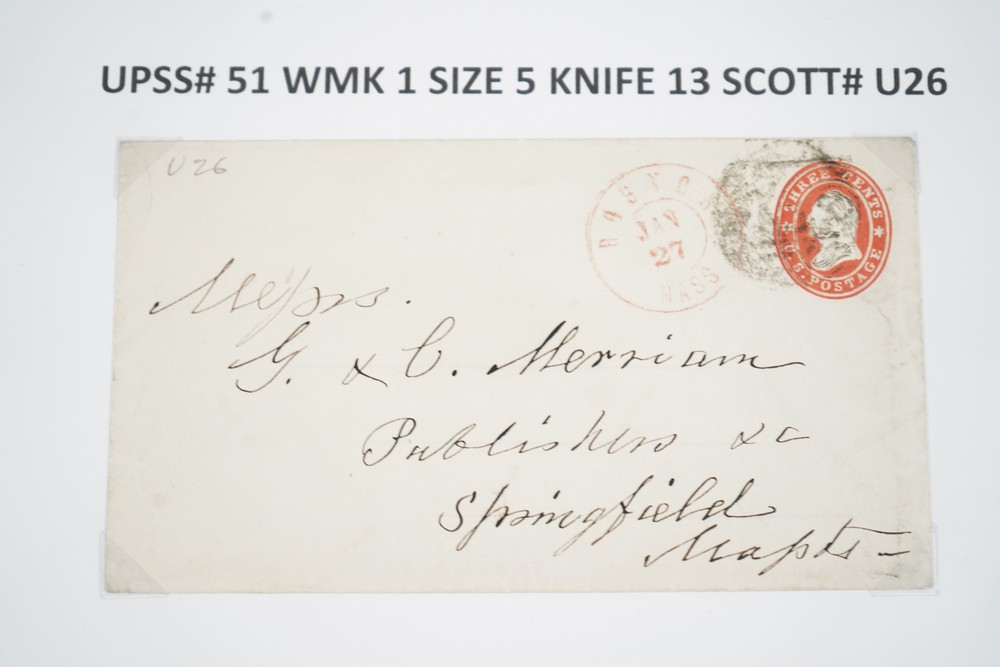 UPSS# 51 WMK 1 SIZE 5 KNIFE 13 SCOTT# U26
U 26
BOSTON
JAN
27
MASS
THREE CENTS
U.S. POSTAGE
Messrs.
G. & C. Merriam
Publishers &c
Springfield
Massts –